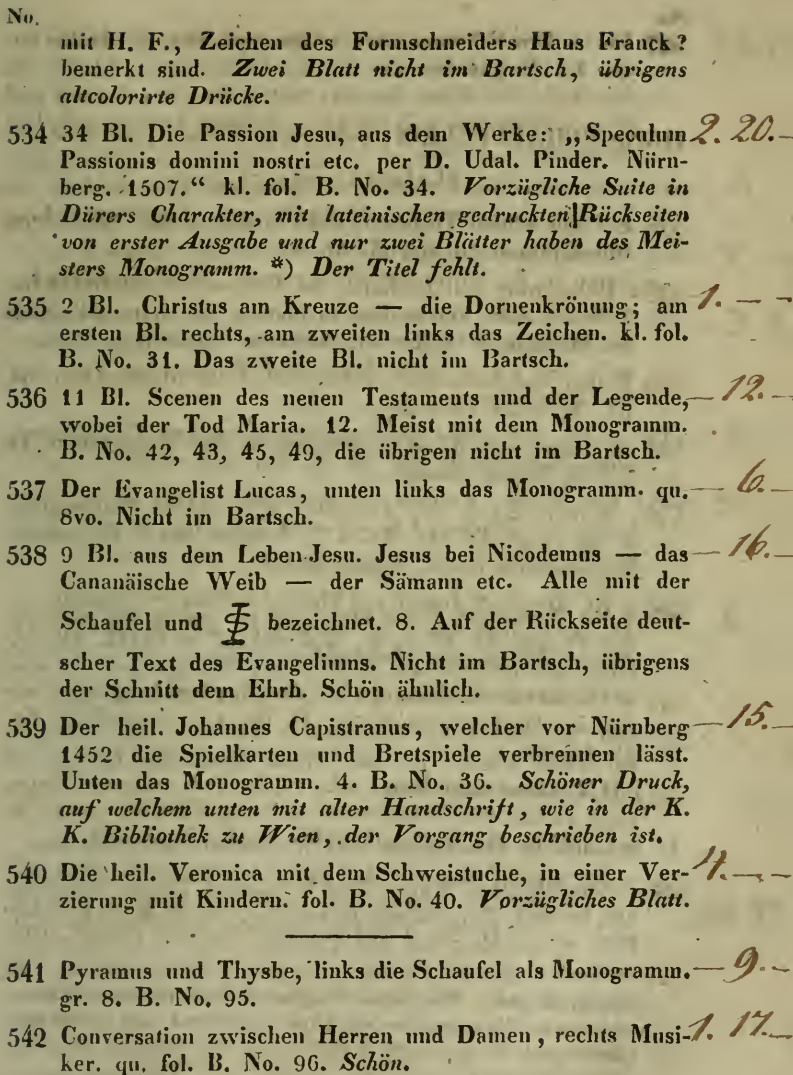 No.
mit H. F., Zeichen des Formschneiders Hans Franck?
bemerkt sind. Zwei Blatt nicht im Bartsch, übrigens
altcolorirte Drücke.
534 34 Bl. Die Passion Jesu, aus dem Werke: „Speculum 2. 20. –
Passionis domini nostri etc. per D. Udal. Pinder. Nürn-
berg. 1507.“ kl. fol. B. No. 34. Vorzügliche Suite in
Dürers Charakter, mit lateinischen gedruckten Rückseiten
von erster Ausgabe und nur zwei Blätter haben des Mei-
sters Monogramm. *) Der Titel fehlt.
535 2 Bl. Christus am Kreuze — die Dornenkrönung; am 1. – –
ersten Bl. rechts, am zweiten links das Zeichen. kl. fol.
B. No. 31. Das zweite Bl. nicht im Bartsch.
536 11 Bl. Scenen des neuen Testaments und der Legende, – 12. –
wobei der Tod Maria. 12. Meist mit dem Monogramm.
B. No. 42, 43, 45, 49, die übrigen nicht im Bartsch.
537 Der Evangelist Lucas, unten links das Monogramm. qu. – 6. –
8vo. Nicht im Bartsch.
538 9 Bl. aus dem Leben Jesu. Jesus bei Nicodemus — das – 16. –
Cananäische Weib — der Sämann etc. Alle mit der
Schaufel und bezeichnet. 8. Auf der Rückseite deut-
scher Text des Evangeliums. Nicht im Bartsch, übrigens
der Schnitt dem Ehrh. Schön ähnlich.
539 Der heil. Johannes Capistranus, welcher vor Nürnberg – 15. –
1452 die Spielkarten und Bretspiele verbrennen lässt.
Unten das Monogramm. 4. B. No. 36. Schöner Druck,
auf welchem unten mit alter Handschrift, wie in der K.
K. Bibliothek zu Wien, der Vorgang beschrieben ist.
540 Die heil. Veronica mit dem Schweistuche, in einer Ver- 4. – –
zierung mit Kindern. fol. B. No. 40. Vorzügliches Blatt.
541 Pyramus und Thysbe, links die Schaufel als Monogramm. – 9. –
gr. 8. B. No. 95.
542 Conversation zwischen Herren und Damen, rechts Musi- 1. 17. –
ker. qu. fol. B. No. 96. Schön.